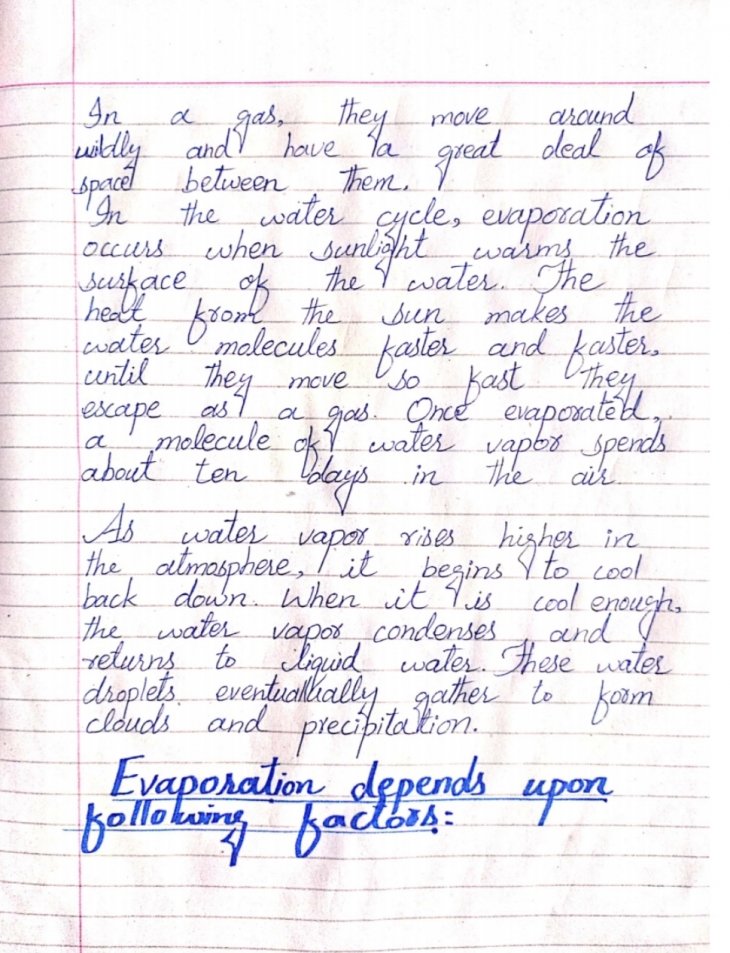 In a gas, they move around
wildly and have a great deal of
space between them.
In the water cycle, evaporation
occurs when sunlight warms the
surface of the water. The
heat from the sun makes the
water molecules faster and faster,
until they move so fast they
escape as a gas. Once evaporated,
a molecule of water vapor spends
about ten days in the air.
As water vapor rises higher in
the atmosphere, it begins to cool
back down. When it is cool enough,
the water vapor condenses and
returns to liquid water. These water
droplets eventuallually gather to form
clouds and precipitation.
Evaporation depends upon
following factors: